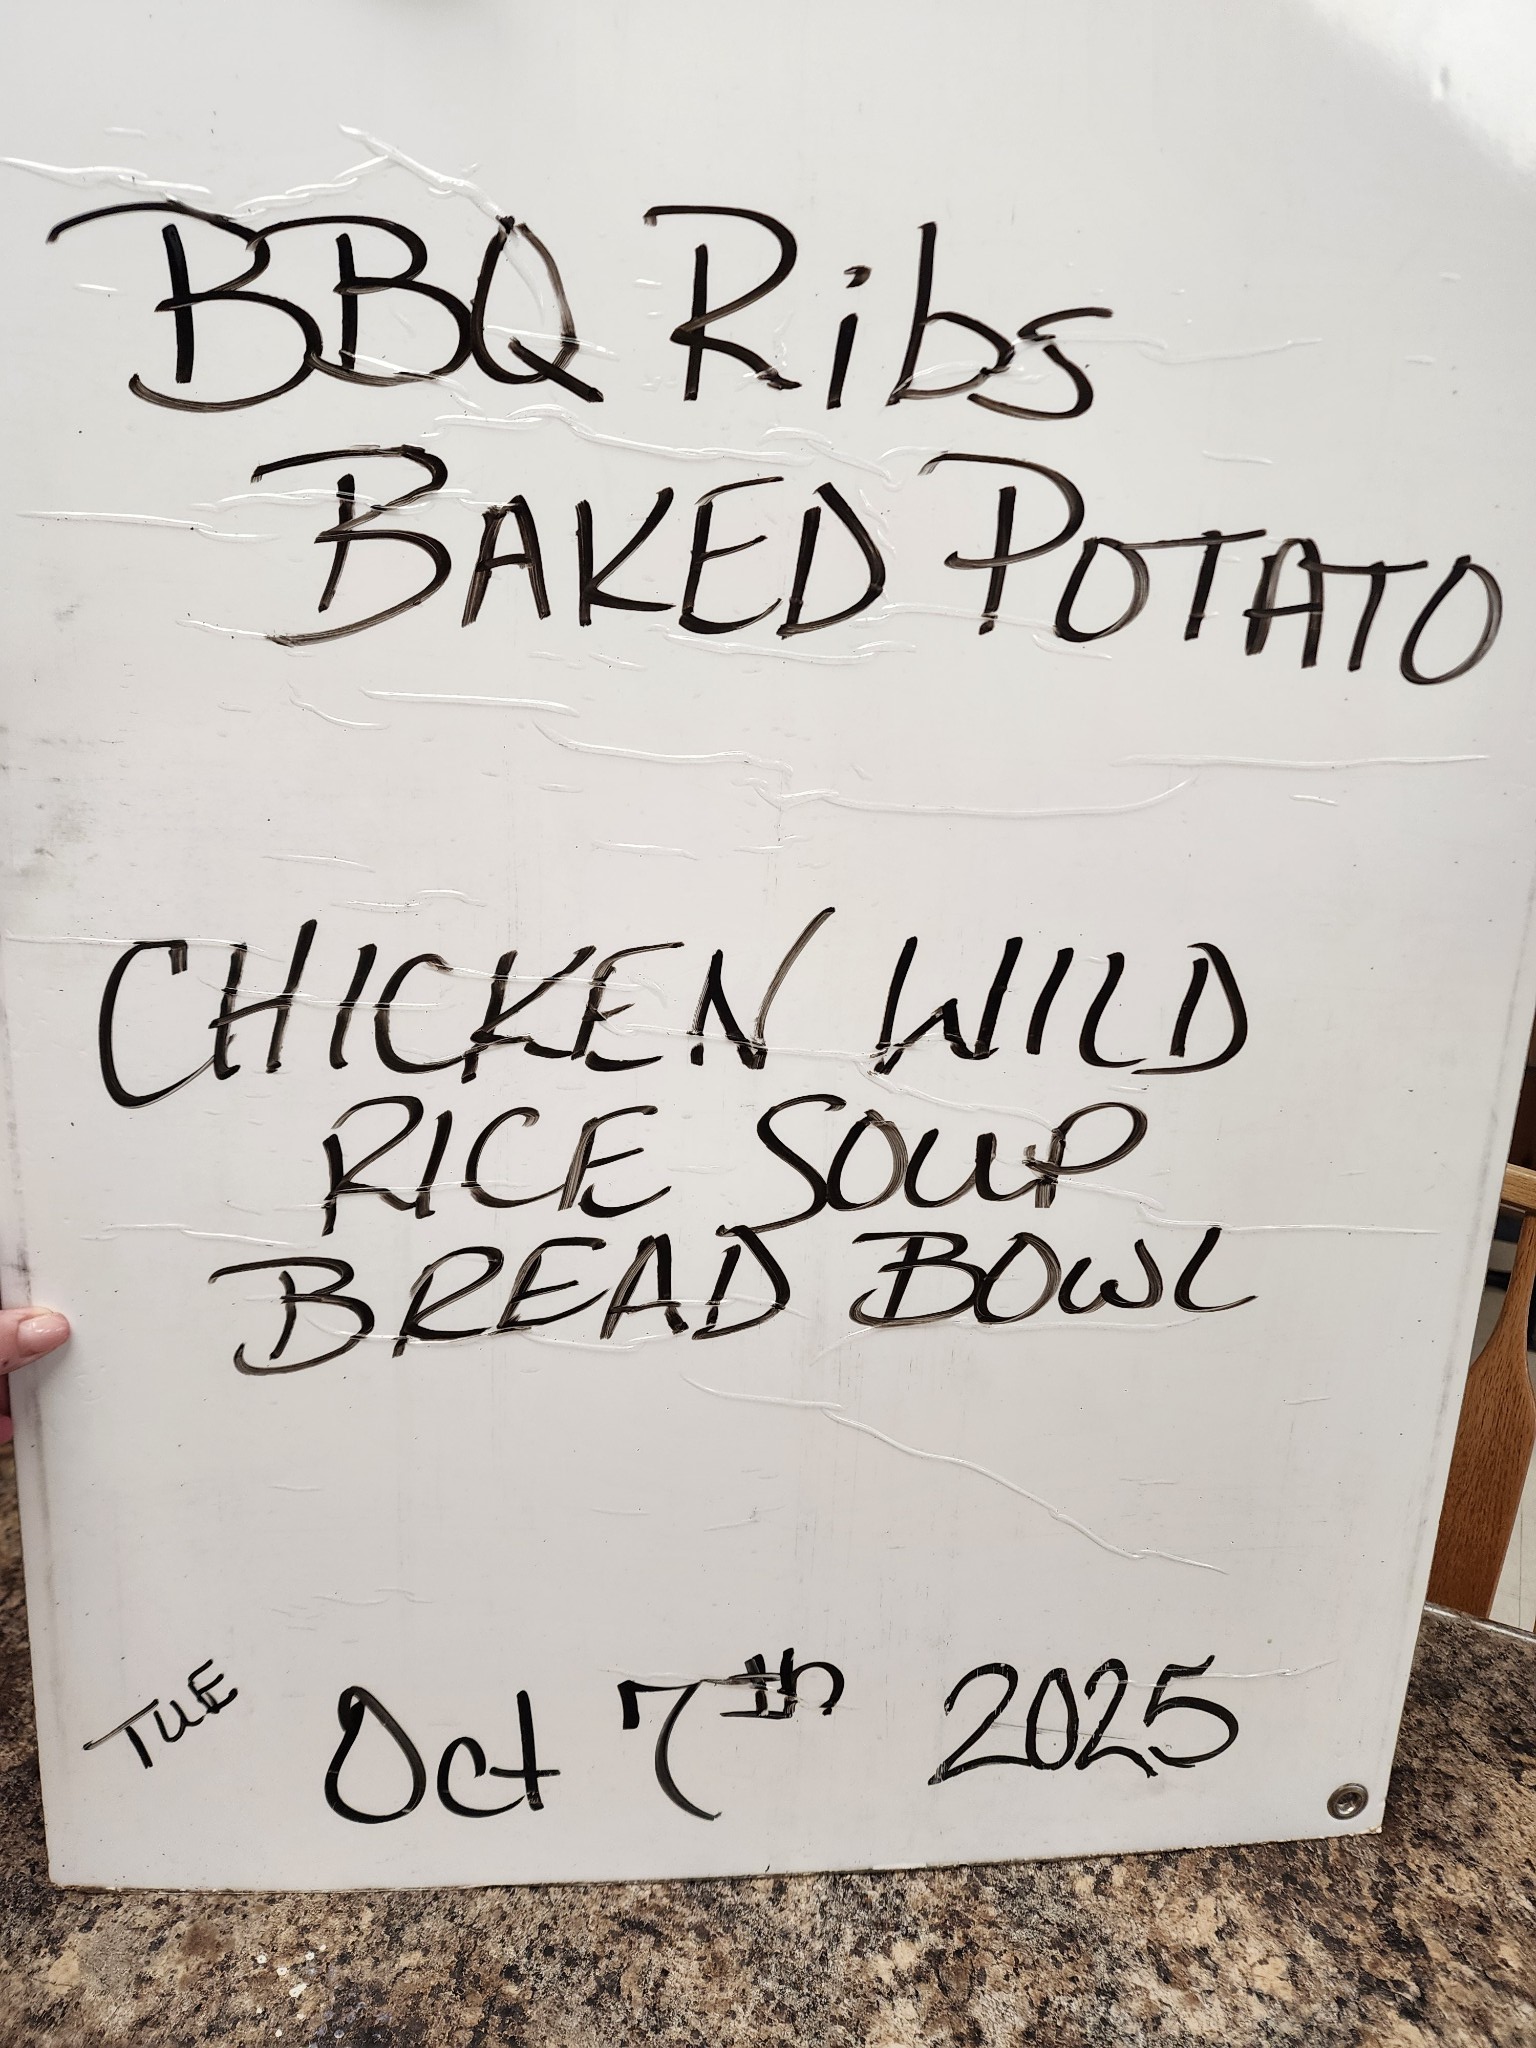 BBQ Ribs
BAKED POTATO
CHICKEN WILD
RICE SOUP
BREAD BOWL
TUE Oct 7th 2025